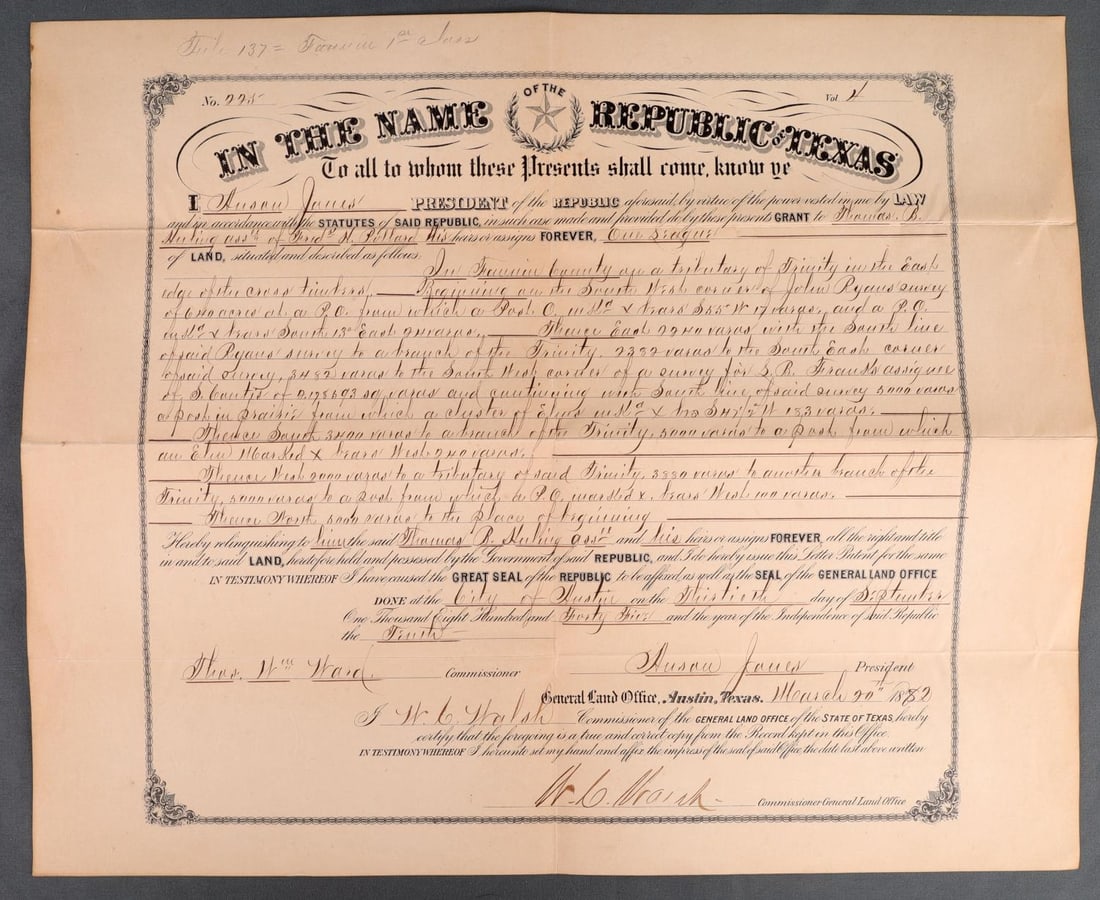 File 137 = Fannin 1st class
No. 225
Vol 4
IN THE NAME OF THE REPUBLIC OF TEXAS
To all to whom these Presents shall come, know ye
I Anson Jones PRESIDENT of the REPUBLIC aforesaid, by virtue of the power vested in me by LAW
and in accordance with the STATUTES OF SAID REPUBLIC, in such case made and provided do by these presents GRANT to Thomas B.
Huling assee of Fredk H. Pollard his heirs or assigns FOREVER, One League
of LAND, situated and described as follows:
In Fannin County on a tributary of Trinity in the East
edge of the cross timbers, Beginning on the South West corner of John Ryans survey
of 640 acres at a P.O. from which a Post O. mkd X bears S 55 W 17 varas, and a P.O.
mkd X bears South 13 East 24 varas, Thence East 2240 varas with the South line
of said Ryans survey to a branch of the Trinity, 2382 varas to the South East corner
of said survey, 3482 varas to the South West corner of a survey for S. R. Franks assignee
of S. of sq varas and continuing with South line of said survey 5000 varas
a Post in prairie from which a cluster of Elms mkd X W 183 varas.
Thence South 3400 varas to a branch of the Trinity, 5000 varas to a Post from which
an Elm Marked X bears West 240 varas.
Thence West 2000 varas to a tributary of said Trinity, 3880 varas to another branch of the
Trinity, 5000 varas to a Post from which a P.O. marked X bears West 100 varas.
Thence North 5000 varas to the place of beginning
Hereby relinquishing to him the said Thomas B. Huling assee and his heirs or assigns FOREVER, all the right and title
in and to said LAND, heretofore held and possessed by the Government of said REPUBLIC, and I do hereby issue this Letter Patent for the same
IN TESTIMONY WHEREOF I have caused the GREAT SEAL of the REPUBLIC to be affixed, as well as the SEAL of the GENERAL LAND OFFICE
DONE at the City of Austin on the Thirtieth day of September
One Thousand Eight Hundred and Forty Five and the year of the Independence of said Republic
the Tenth
Thos. Wm Ward Commissioner Anson Jones President
General Land Office, Austin, Texas. March 20th 1882
I W. C. Walsh Commissioner of the GENERAL LAND OFFICE of the STATE OF TEXAS, hereby
certify that the foregoing is a true and correct copy from the Record kept in this Office.
IN TESTIMONY WHEREOF I hereunto set my hand and affix the impress of the seal of said Office, the date last above written
W. C. Walsh Commissioner General Land Office